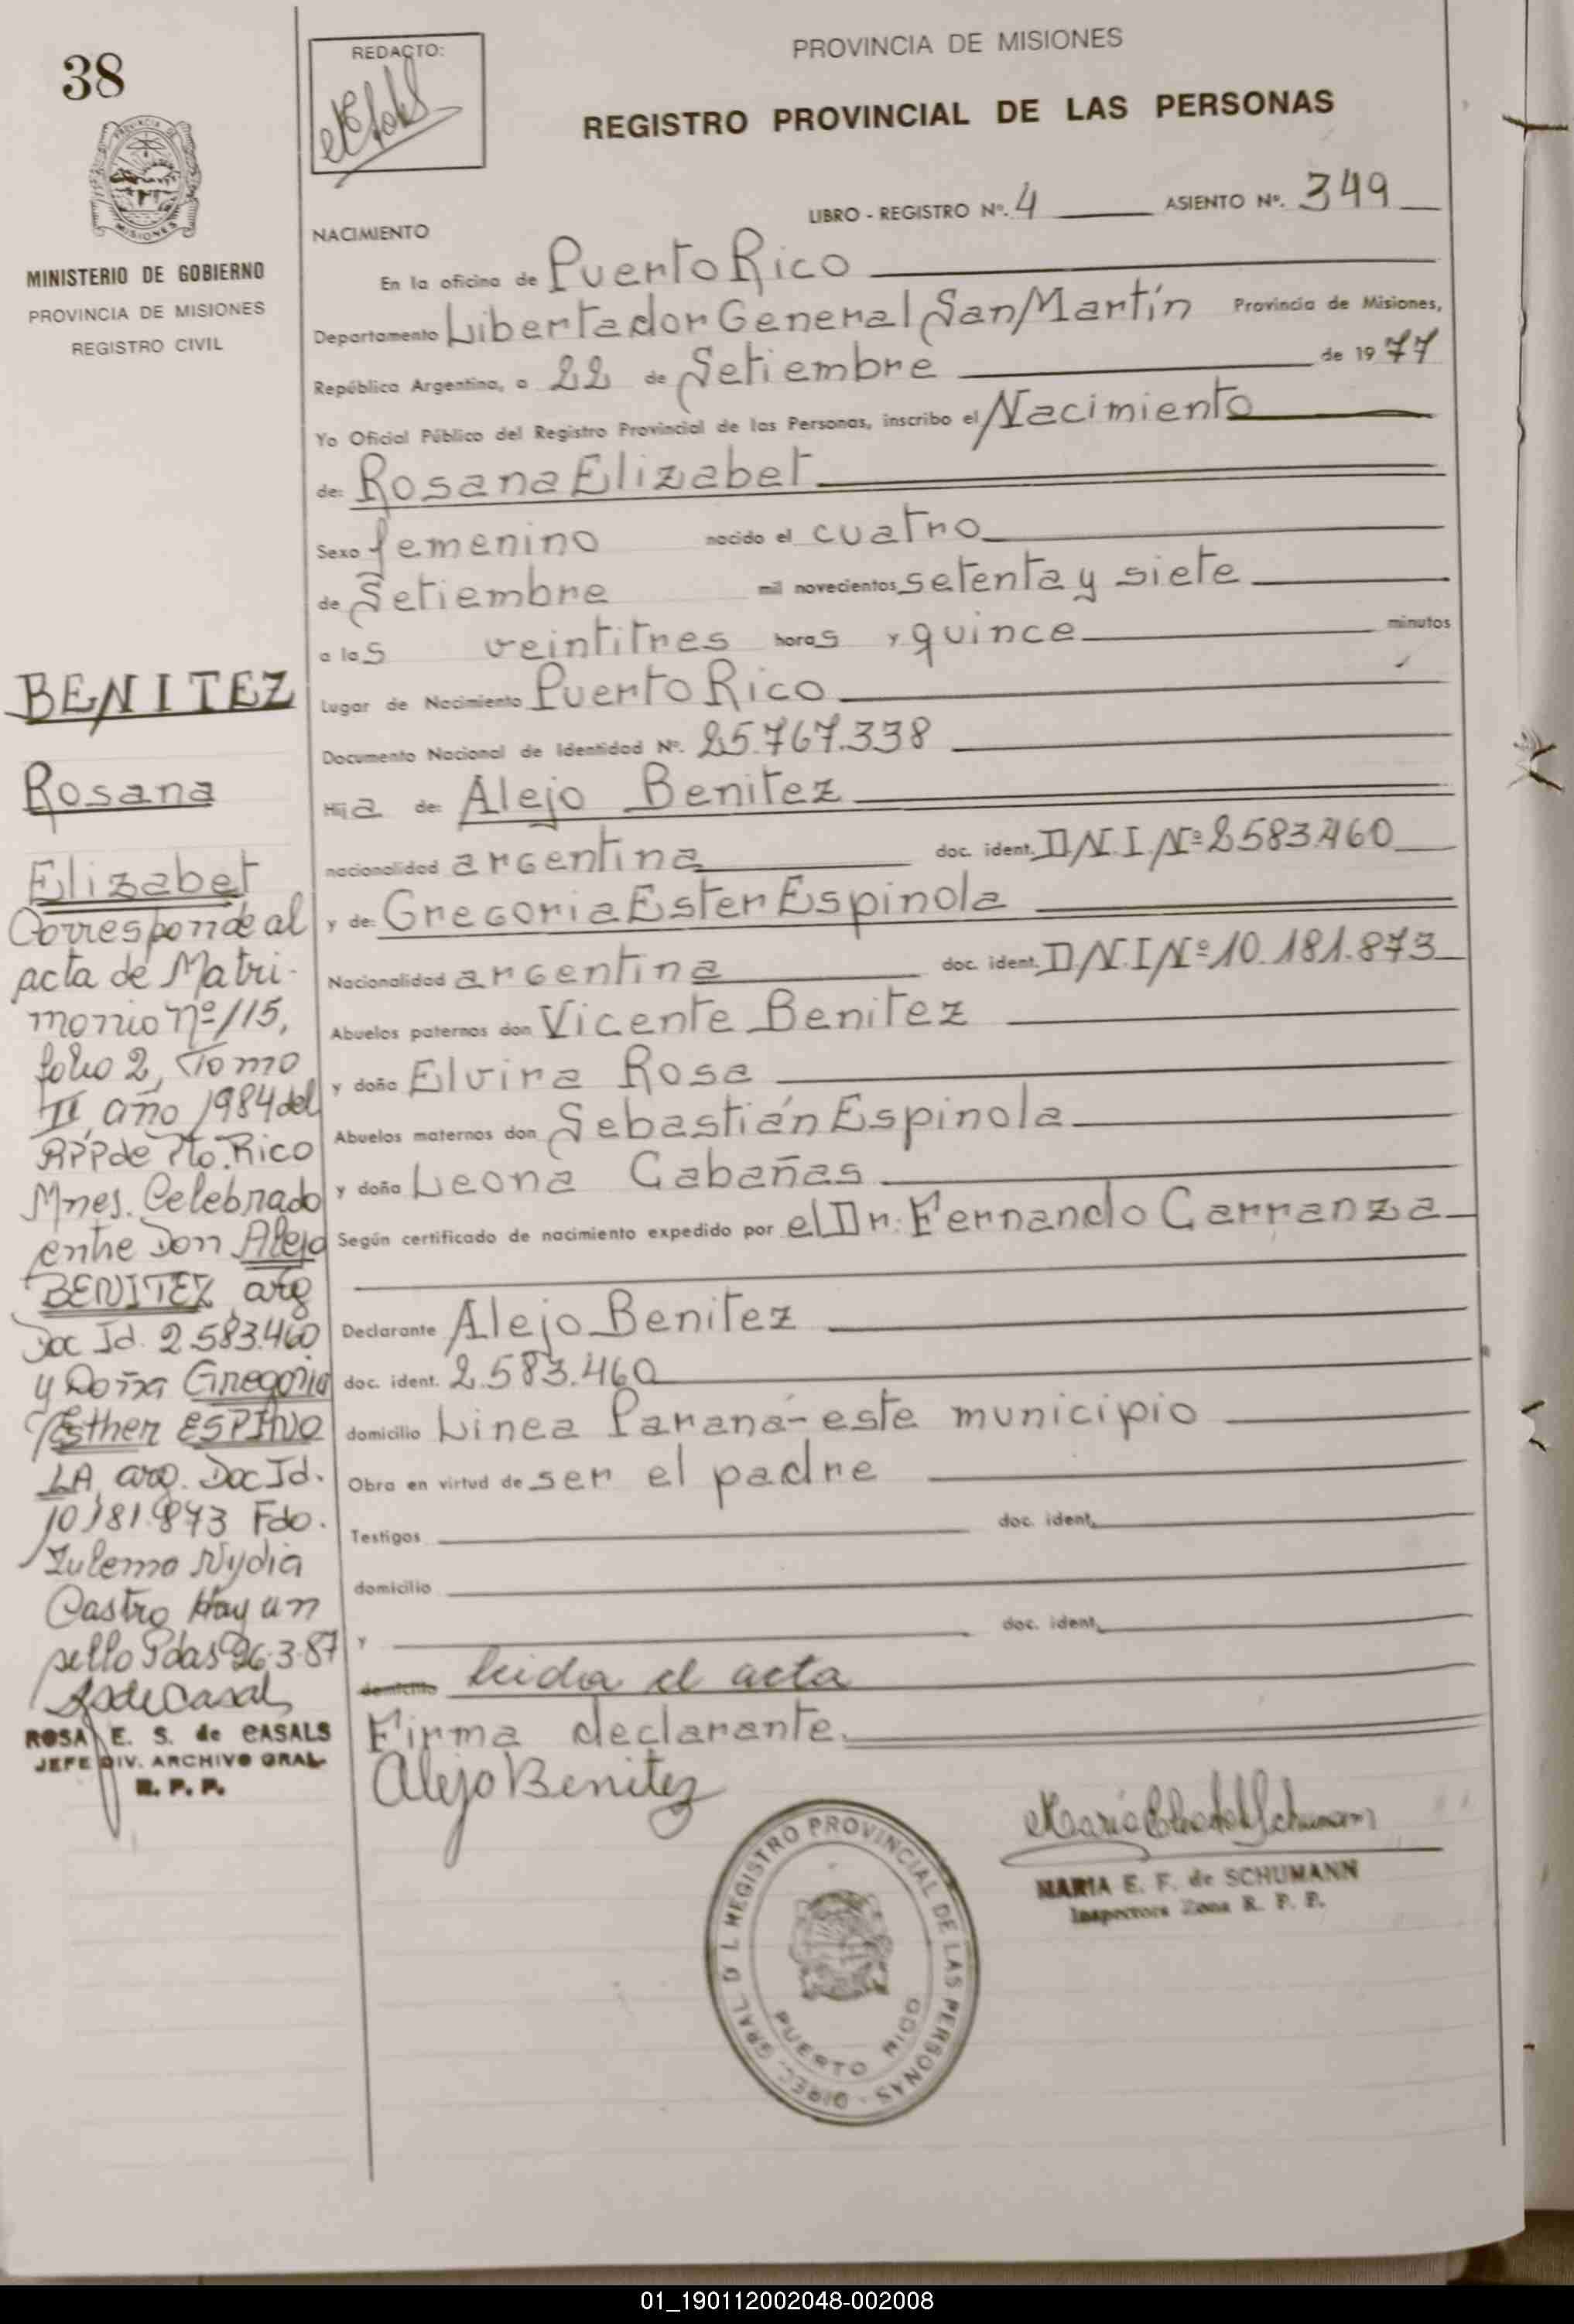 38
REDACTO:
PROVINCIA DE MISIONES
REGISTRO PROVINCIAL DE LAS PERSONAS
LIBRO - REGISTRO Nº. 4 ASIENTO Nº. 349
MINISTERIO DE GOBIERNO
PROVINCIA DE MISIONES
REGISTRO CIVIL
NACIMIENTO
En la oficina de Puerto Rico
Departamento Libertador General San Martín Provincia de Misiones,
República Argentina, a 22 de Setiembre de 1977
Yo Oficial Público del Registro Provincial de las Personas, inscribo el Nacimiento
de: Rosana Elizabet
Sexo femenino nacido el cuatro
de Setiembre mil novecientos setenta y siete
a las veintitres horas y quince minutos
Lugar de Nacimiento Puerto Rico
Documento Nacional de Identidad Nº. 25.767.338
Hija de: Alejo Benitez
nacionalidad argentina doc. ident. D.N.I. Nº 2583.460
y de: Gregoria Ester Espinola
Nacionalidad argentina doc. ident. D.N.I Nº 10.181.873
Abuelos paternos don Vicente Benitez
y doña Elvira Rosa
Abuelos maternos don Sebastián Espinola
y doña Leona Cabañas
Según certificado de nacimiento expedido por el Dr. Fernando Carranza
Declarante Alejo Benitez
doc. ident. 2.583.460
domicilio Linea Paraná-este municipio
Obra en virtud de ser el padre
Testigos doc. ident.
domicilio
y doc. ident.
domicilio leida el acta
Firma declarante.
Alejo Benitez
BENITEZ
Rosana
Elizabet
Corresponde al
acta de Matri-
monio nº 115,
folio 2, Tomo
II, año 1984 del
RPP de Pto. Rico
Mnes. Celebrado
entre Don Alejo
BENITEZ, arg
Doc Id. 2.583.460
y Doña Gregoria
Esther ESPINO
LA, arg. Doc Id.
10.181.873 Fdo.
Zulema Nydia
Castro Hay un
sello Pdas 26.3.87
ROSA E. S. de CASALS
JEFE DIV. ARCHIVO GRAL
R. P. P.
DIREC. GRAL D L REGISTRO PROVINCIAL DE LAS PERSONAS
PUERTO RICO
MARIA E. F. de SCHUMANN
Inspectora Zona R. P. P.
01_190112002048-002008